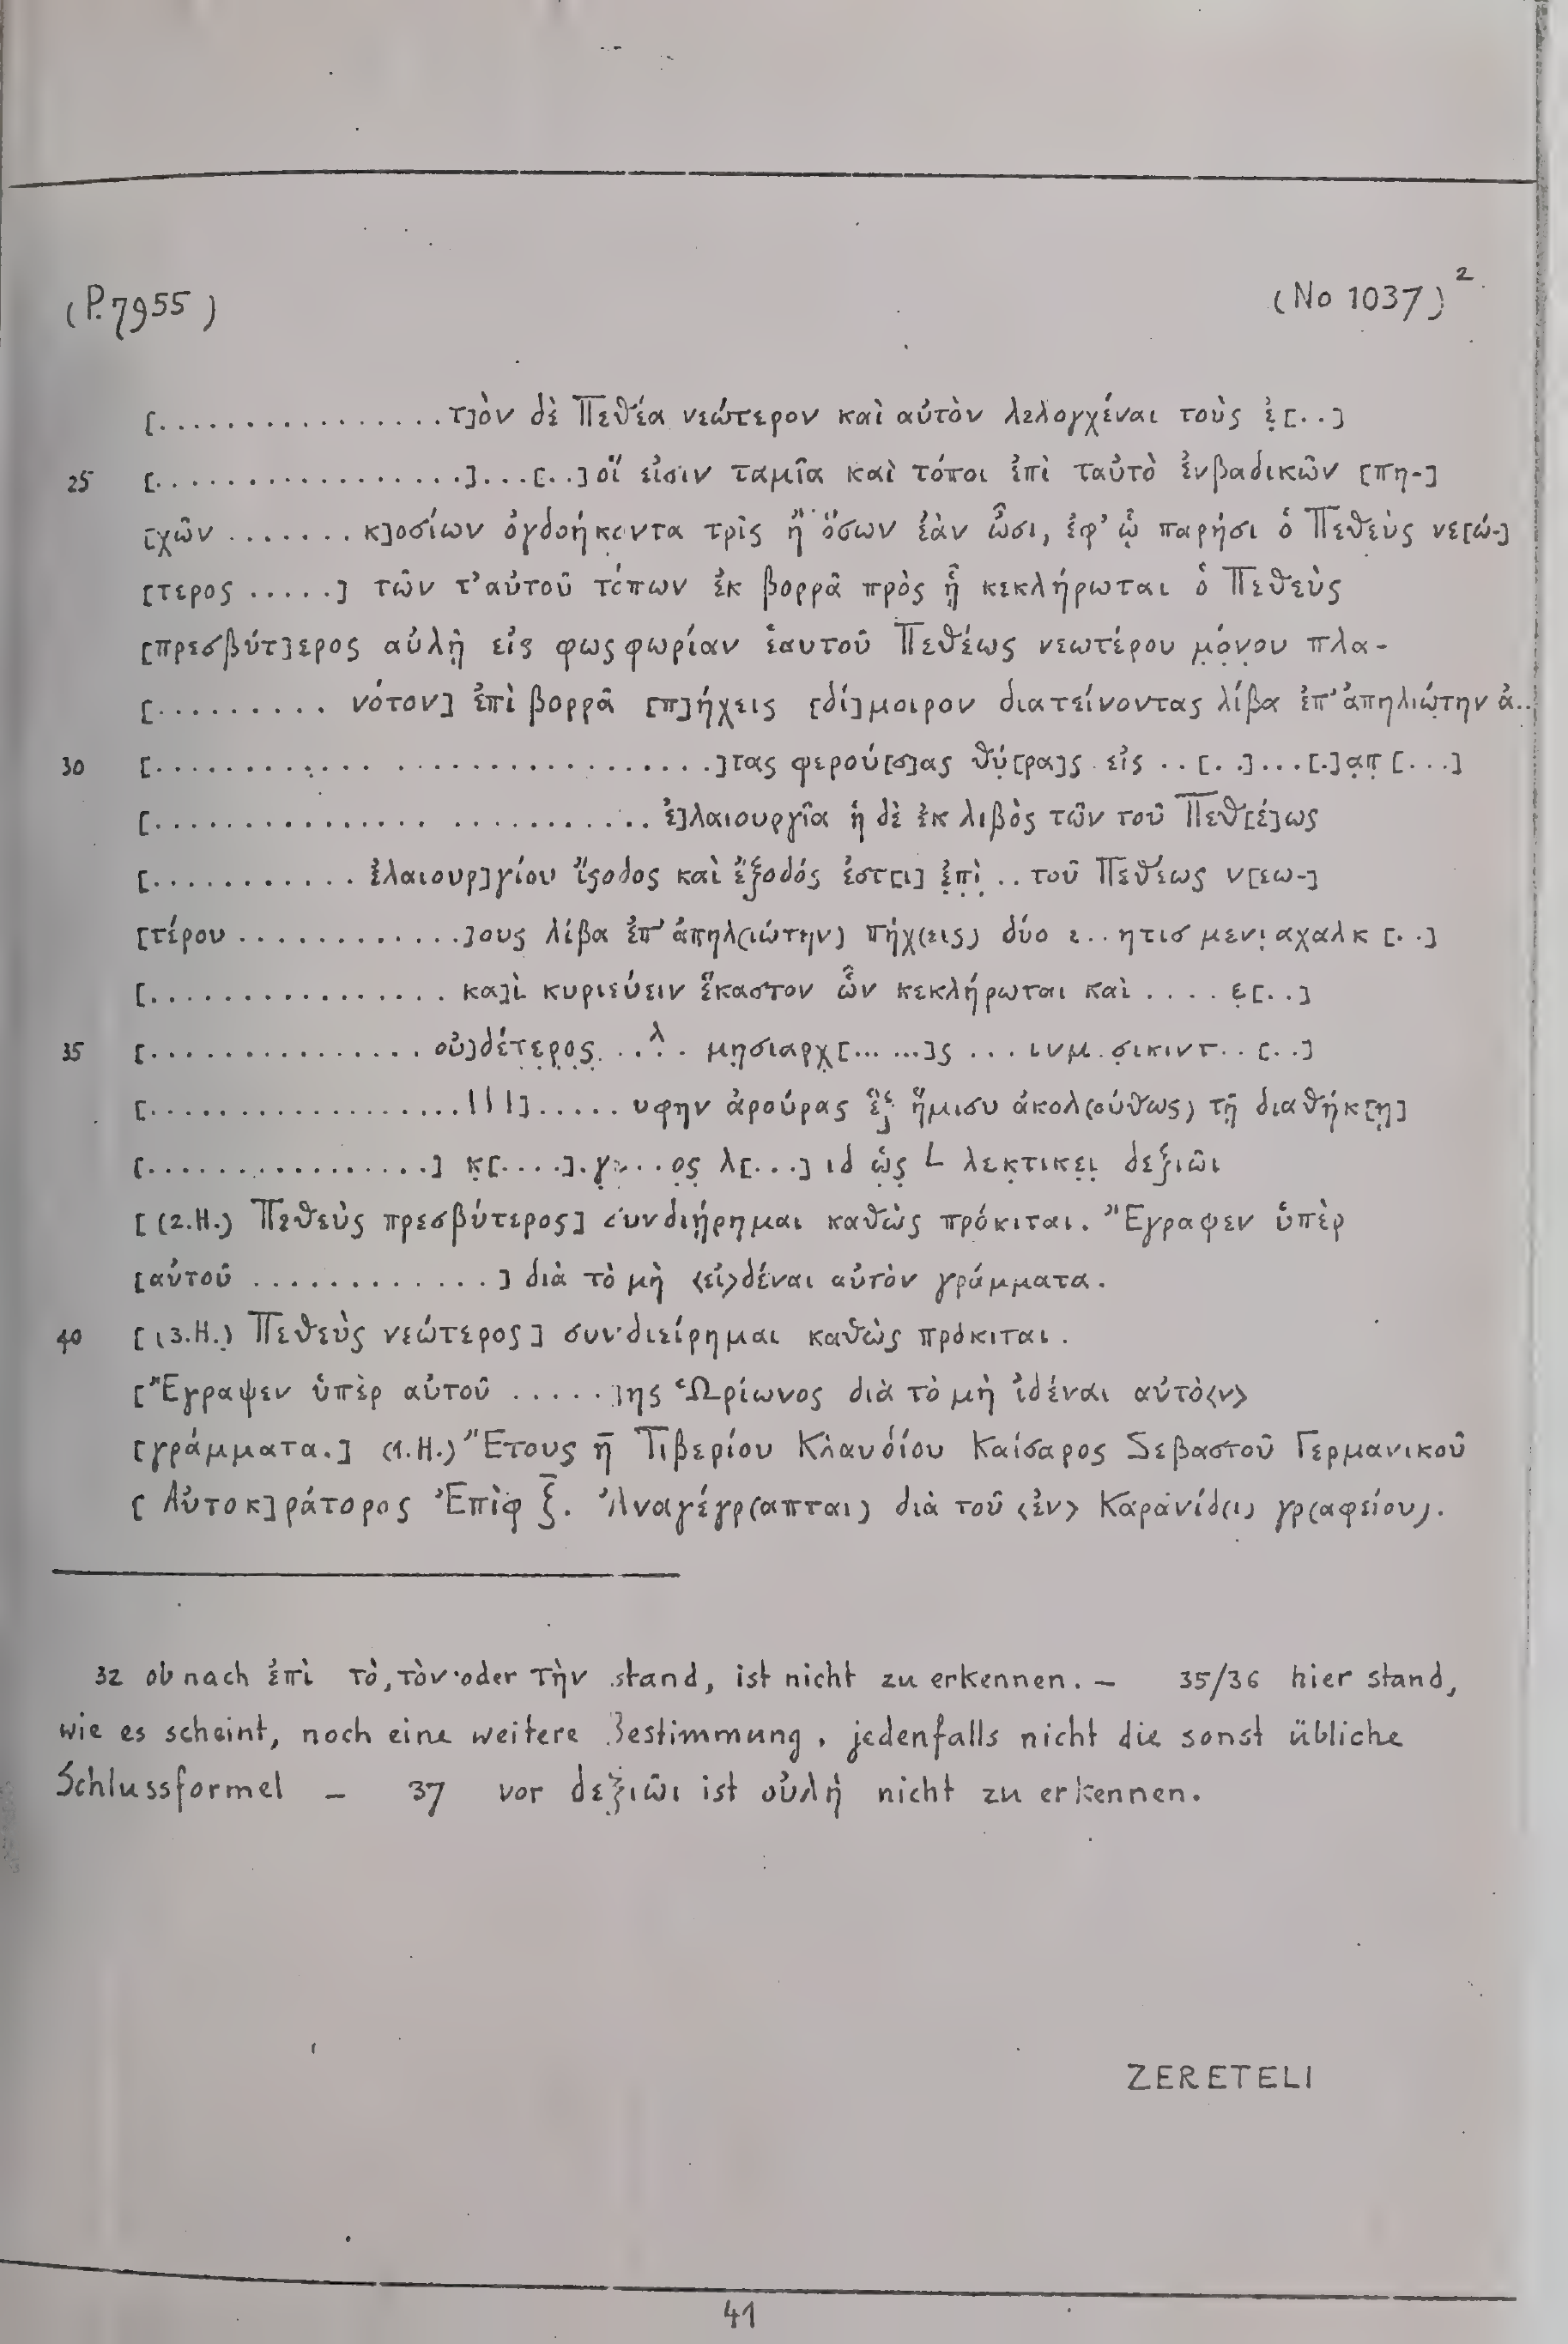 (P. 7955) (No 1037)²
[.................τ]ὸν δὲ Πεθέα νεώτερον καὶ αὐτὸν λελογχέναι τοὺς ἐ̣[..]
25 [...................]...[..]οἵ εἰσιν ταμῖα καὶ τόποι ἐπὶ ταὐτὸ ἐνβαδικῶν [πη-]
[χῶν ....... κ]οσίων ὀγδοήκοντα τρῖς ἢ ὅσων ἐὰν ὦσι, ἐφ' ᾧ παρήσι ὁ Πεθεὺς νε[ώ-]
[τερος .....] τῶν τ'αὐτοῦ τόπων ἐκ βορρᾶ πρὸς ᾗ κεκλήρωται ὁ Πεθεὺς
[πρεσβύτ]ερος αὐλὴ̣ εἰς φωςφωρίαν ἑαυτοῦ Πεθέως νεωτέρου μ̣ό̣ν̣ου πλα-
[......... νότον] ἐπὶ βορρᾶ [π]ήχεις [δί]μοιρον διατείνοντας λίβα ἐπ' ἀπηλιώτην ἀ..
30 [..................................]τας φερού[σ]ας θύ̣[ρα]ς εἰς ..[..]...[.]α̣π̣[...]
[........................... ἐ]λαιουργῖα ἡ δὲ ἐκ λιβὸς τῶν τοῦ Πεθ[έ]ως
[............ ἐλαιουρ]γίου ἴσοδος καὶ ἔξοδός ἐστ[ι] ἐ̣π̣ὶ̣ .. τοῦ Πεθέως ν[εω-]
[τέρου .............]ους λίβα ἐπ' ἀπηλ(ιώτην) πήχ(εις) δύο ε..ητισ μεν̣ι̣ αχαλκ[..]
[.................. κα]ὶ κυριεύειν ἕκαστον ὧν κεκλήρωται καὶ .... ε̣[..]
35 [................ οὐ]δέτ̣ε̣ρ̣ο̣ς̣ ..λ.. μη̣σιαρχ̣[... ...]ς ... ινμ.σ̣ικιντ..[..]
[...................|||]..... υφην ἀρούρας ἓξ̣ ἥμισυ ἀκολ(ούθως) τῇ διαθήκ[ῃ]
[.................] κ̣[....].γ̣...ο̣ς λ[...] ιδ ὡ̣ς̣ L λεκ̣τικε̣ι̣ δεξιῶι
[(2.H.) Πεθεὺς πρεσβύτερος] συνδιῄρημαι καθὼς πρόκιται. Ἔγραφεν ὑπὲρ
[αὐτοῦ .............] διὰ τὸ μὴ <εἰ>δέναι αὐτὸν γράμματα.
40 [(3.H.) Πεθεὺς νεώτερος] συνδιείρημαι καθὼς πρόκιται.
[Ἔγραψεν ὑπὲρ αὐτοῦ .....]ης Ὡρίωνος διὰ τὸ μὴ ἰδέναι αὐτὸ<ν>
[γράμματα.] (1.H.) Ἔτους η̄ Τιβερίου Κλαυδίου Καίσαρος Σεβαστοῦ Γερμανικοῦ
[Αὐτοκ]ράτορος Ἐπὶφ ξ̄. Ἀναγέγρ(απται) διὰ τοῦ <ἐν> Καρανίδ(ι) γρ(αφείου).
32 ob nach ἐπὶ τὸ, τὸν oder τὴν stand, ist nicht zu erkennen. – 35/36 hier stand,
wie es scheint, noch eine weitere Bestimmung, jedenfalls nicht die sonst übliche
Schlussformel – 37 vor δεξιῶι ist οὐλὴ nicht zu erkennen.
ZERETELI
41